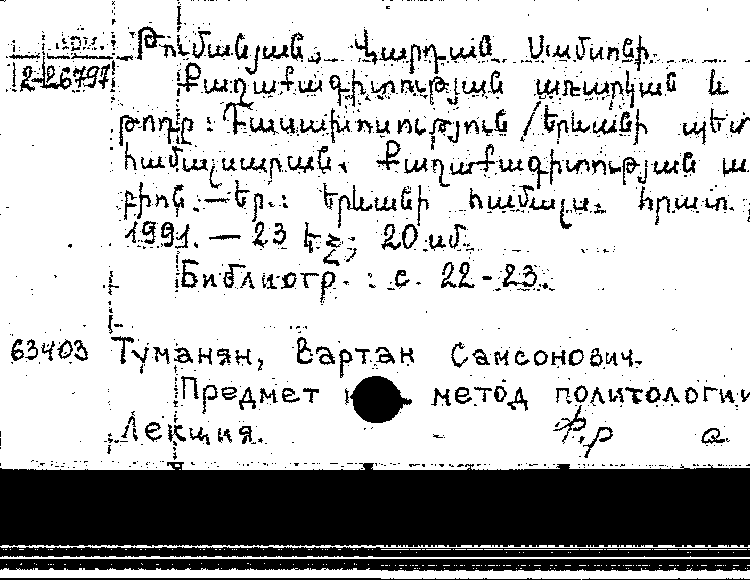 арм.
2-26797
Թումանյան, Վարդան Սամսոնի.
Քաղաքագիտության առարկան և
Դասախոսություն / Երևանի պետ
համալսարան, Քաղաքագիտության ա
բիոն.—Եր.: Երևանի համալս. հրատ.,
1991. — 23 էջ; 20 սմ.
Библиогр.: с. 22-23.
63403 Туманян, Вартан Самсонович.
Предмет метод политологии
Лекция. ф.р а